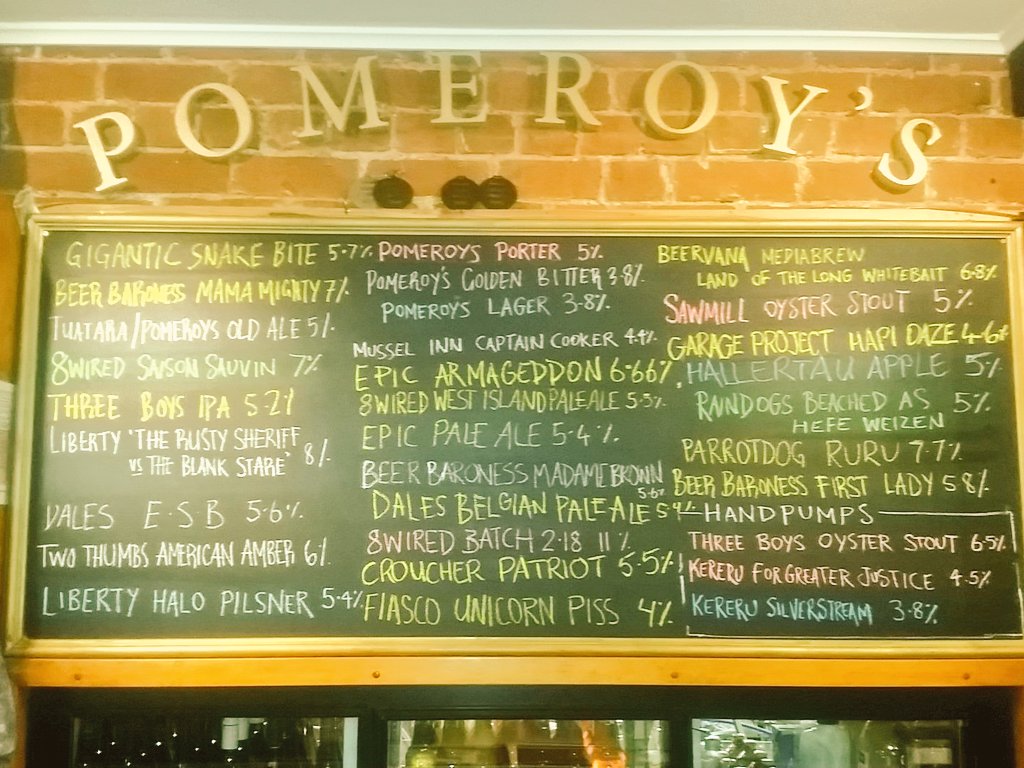 POMEROY'S
GIGANTIC SNAKE BITE 5.7%
BEER BARONESS MAMA MIGHTY 7%
TUATARA/POMEROYS OLD ALE 5%
8WIRED SAISON SAUVIN 7%
THREE BOYS IPA 5.2%
LIBERTY 'THE RUSTY SHERIFF
VS THE BLANK STARE' 8%
DALES E.S.B 5.6%
TWO THUMBS AMERICAN AMBER 6%
LIBERTY HALO PILSNER 5.4%
POMEROYS PORTER 5%
POMEROY'S GOLDEN BITTER 3.8%
POMEROYS LAGER 3.8%
MUSSEL INN CAPTAIN COOKER 4.4%
EPIC ARMAGEDDON 6.66%
8WIRED WEST ISLAND PALE ALE 5.5%
EPIC PALE ALE 5.4%
BEER BARONESS MADAME BROWN
5.6%
DALES BELGIAN PALE ALE 5.4%
8WIRED BATCH 2.18 11%
CROUCHER PATRIOT 5.5%
FIASCO UNICORN PISS 4%
BEERVANA MEDIABREW
LAND OF THE LONG WHITEBAIT 6.8%
SAWMILL OYSTER STOUT 5%
GARAGE PROJECT HAPI DAZE 4.6%
HALLERTAU APPLE 5%
RAINDOGS BEACHED AS 5%
HEFE WEIZEN
PARROTDOG RURU 7.7%
BEER BARONESS FIRST LADY 5.8%
HANDPUMPS
THREE BOYS OYSTER STOUT 6.5%
KERERU FOR GREATER JUSTICE 4.5%
KERERU SILVERSTREAM 3.8%